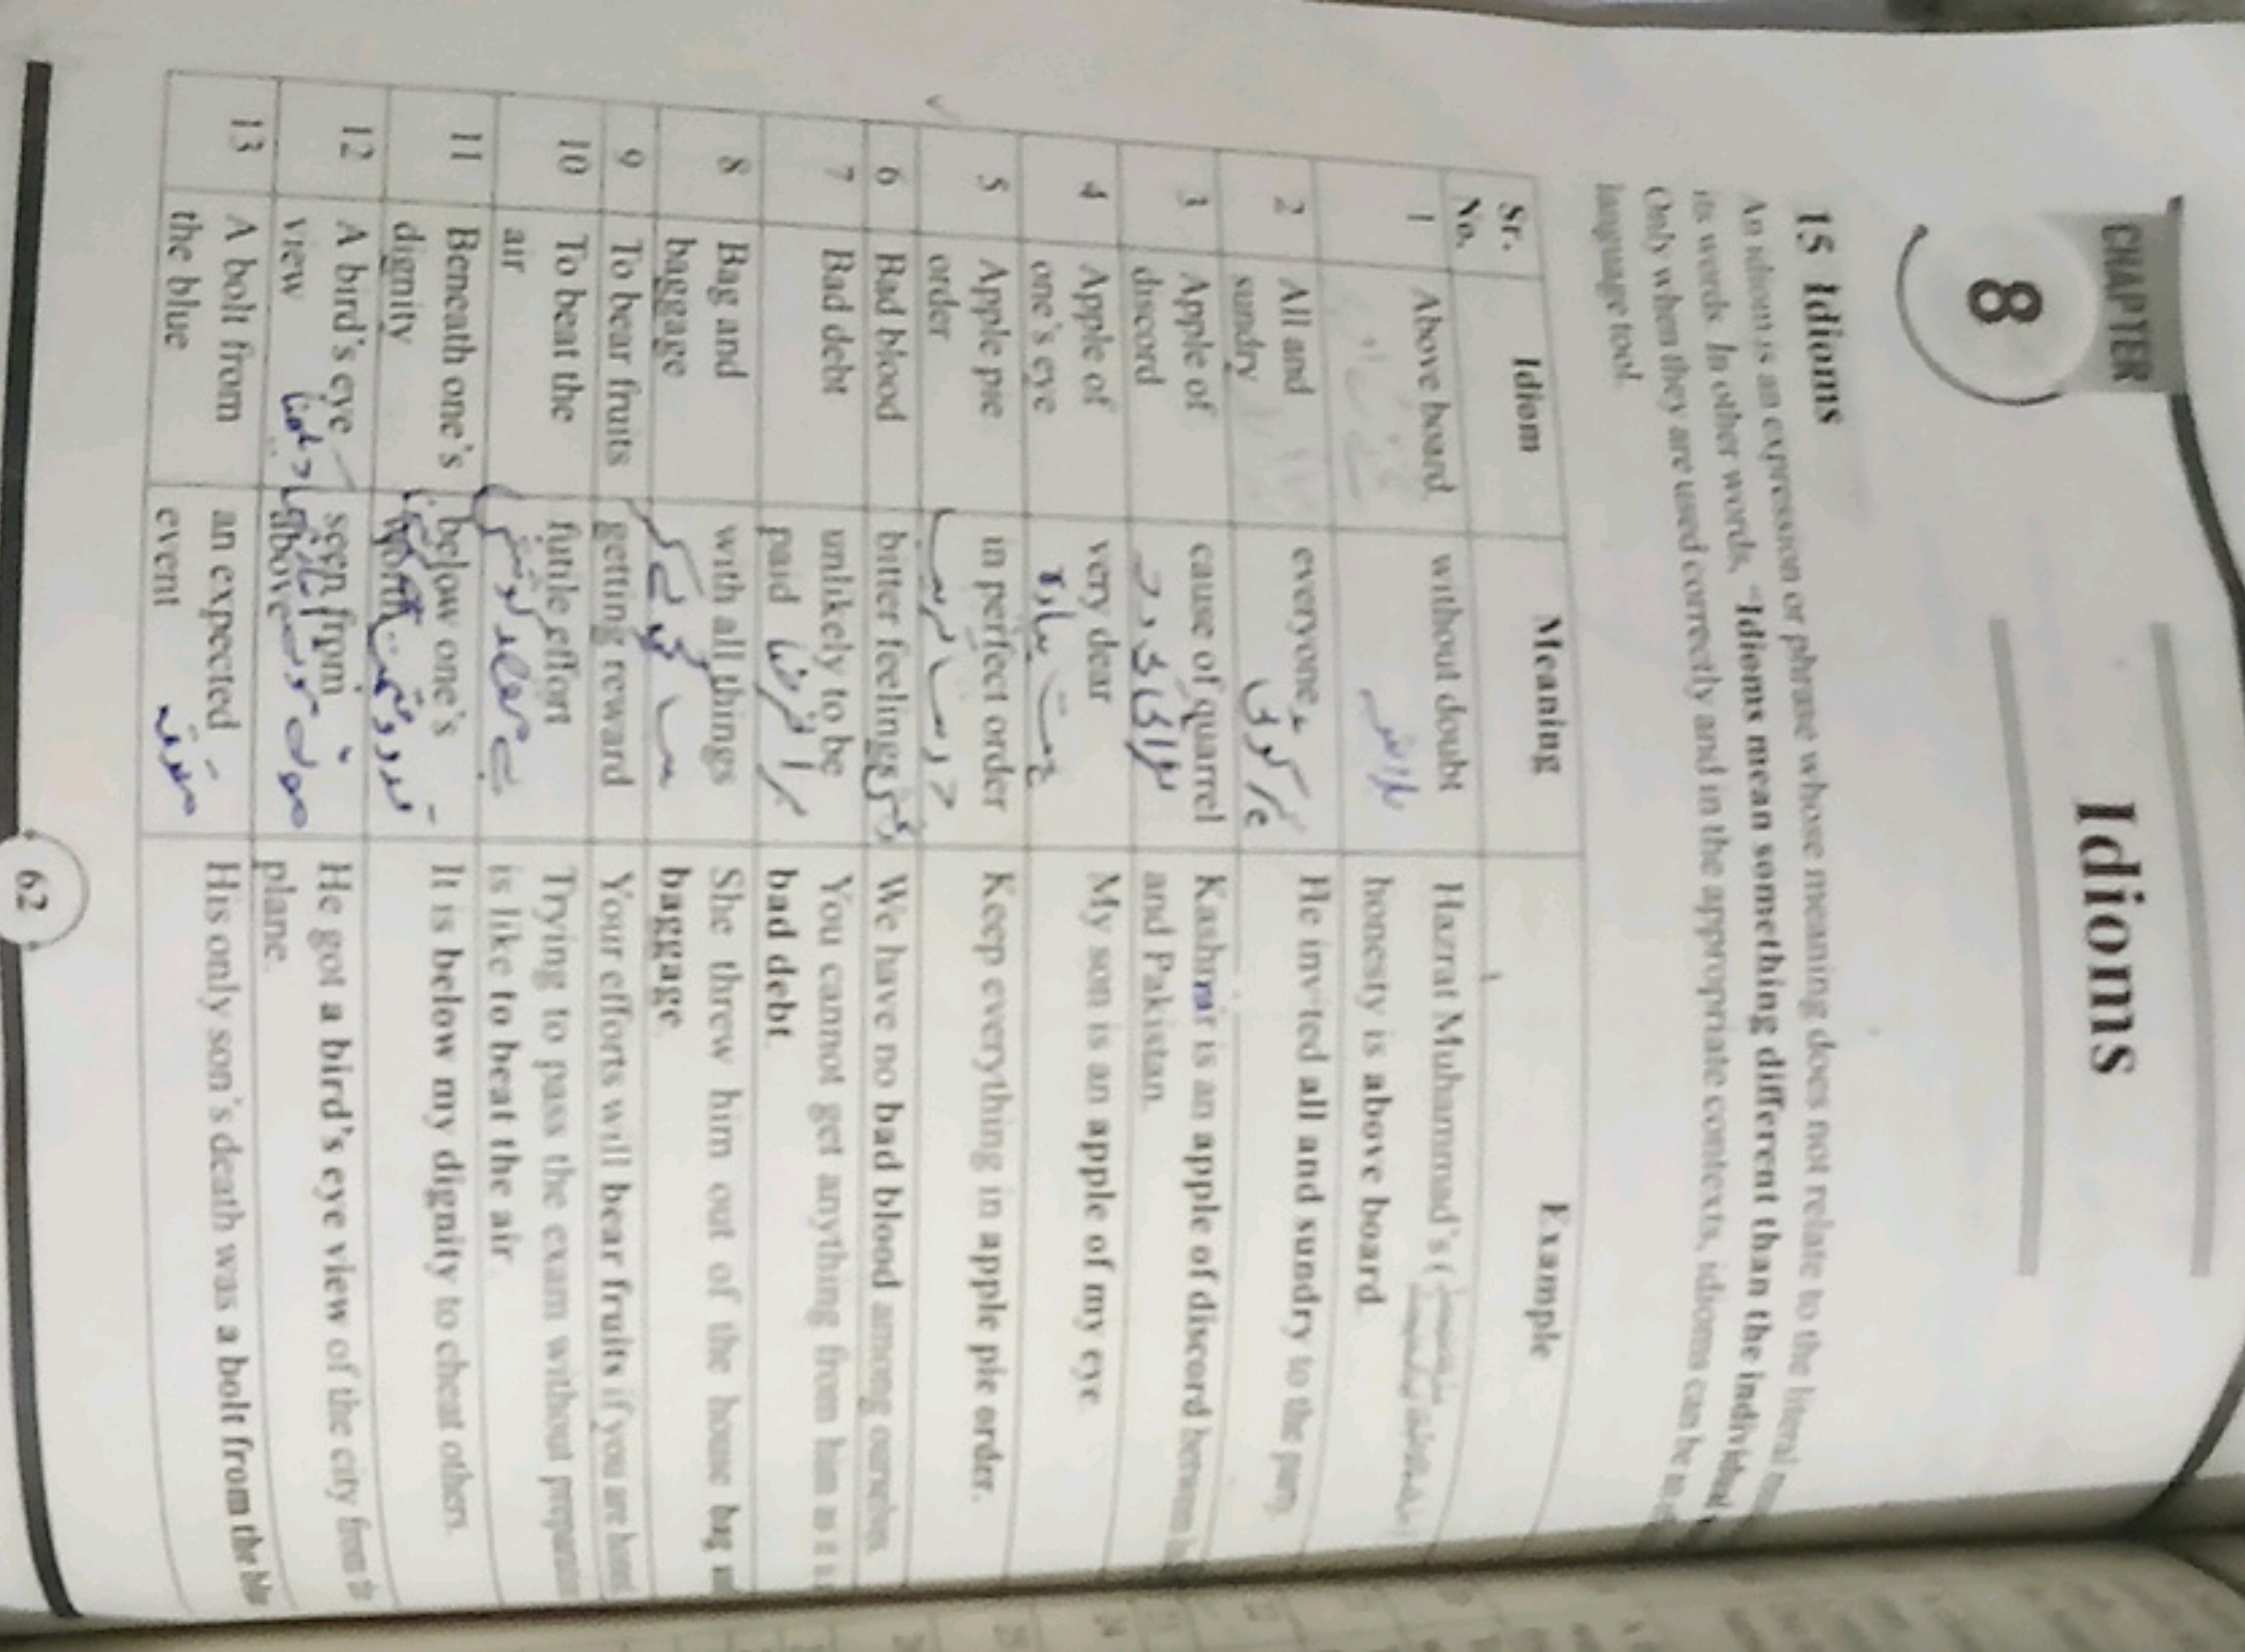 CHAPTER
8
Idioms
15 Idioms
An idiom is an expression or phrase whose meaning does not relate to the literal
its words. In other words, "Idioms mean something different than the individual
Only when they are used correctly and in the appropriate contexts, idioms can be
language tool.
Sr. No. Idiom Meaning Example
1 Above board without doubt Hazrat Muhammad's (
honesty is above board.
2 All and everyone He invited all and sundry to the party.
sundry ہر کوئی
3 Apple of cause of quarrel Kashmir is an apple of discord between
discord لڑائی کی and Pakistan.
4 Apple of very dear My son is an apple of my eye.
one's eye بہت پیارا
5 Apple pie in perfect order Keep everything in apple pie order.
order درست ترتیب
6 Bad blood bitter feelings We have no bad blood among ourselves.
7 Bad debt unlikely to be You cannot get anything from him as
paid برا قرضہ bad debt.
8 Bag and with all things She threw him out of the house bag
baggage سب baggage.
9 To bear fruits getting reward Your efforts will bear fruits if you are
10 To beat the futile effort Trying to pass the exam without
air بے مقصد کوشش is like to beat the air.
11 Beneath one's below one's It is below my dignity to cheat others.
dignity worth
12 A bird's eye seen from He got a bird's eye view of the city from
view above plane.
13 A bolt from an expected His only son's death was a bolt from the
the blue event
62